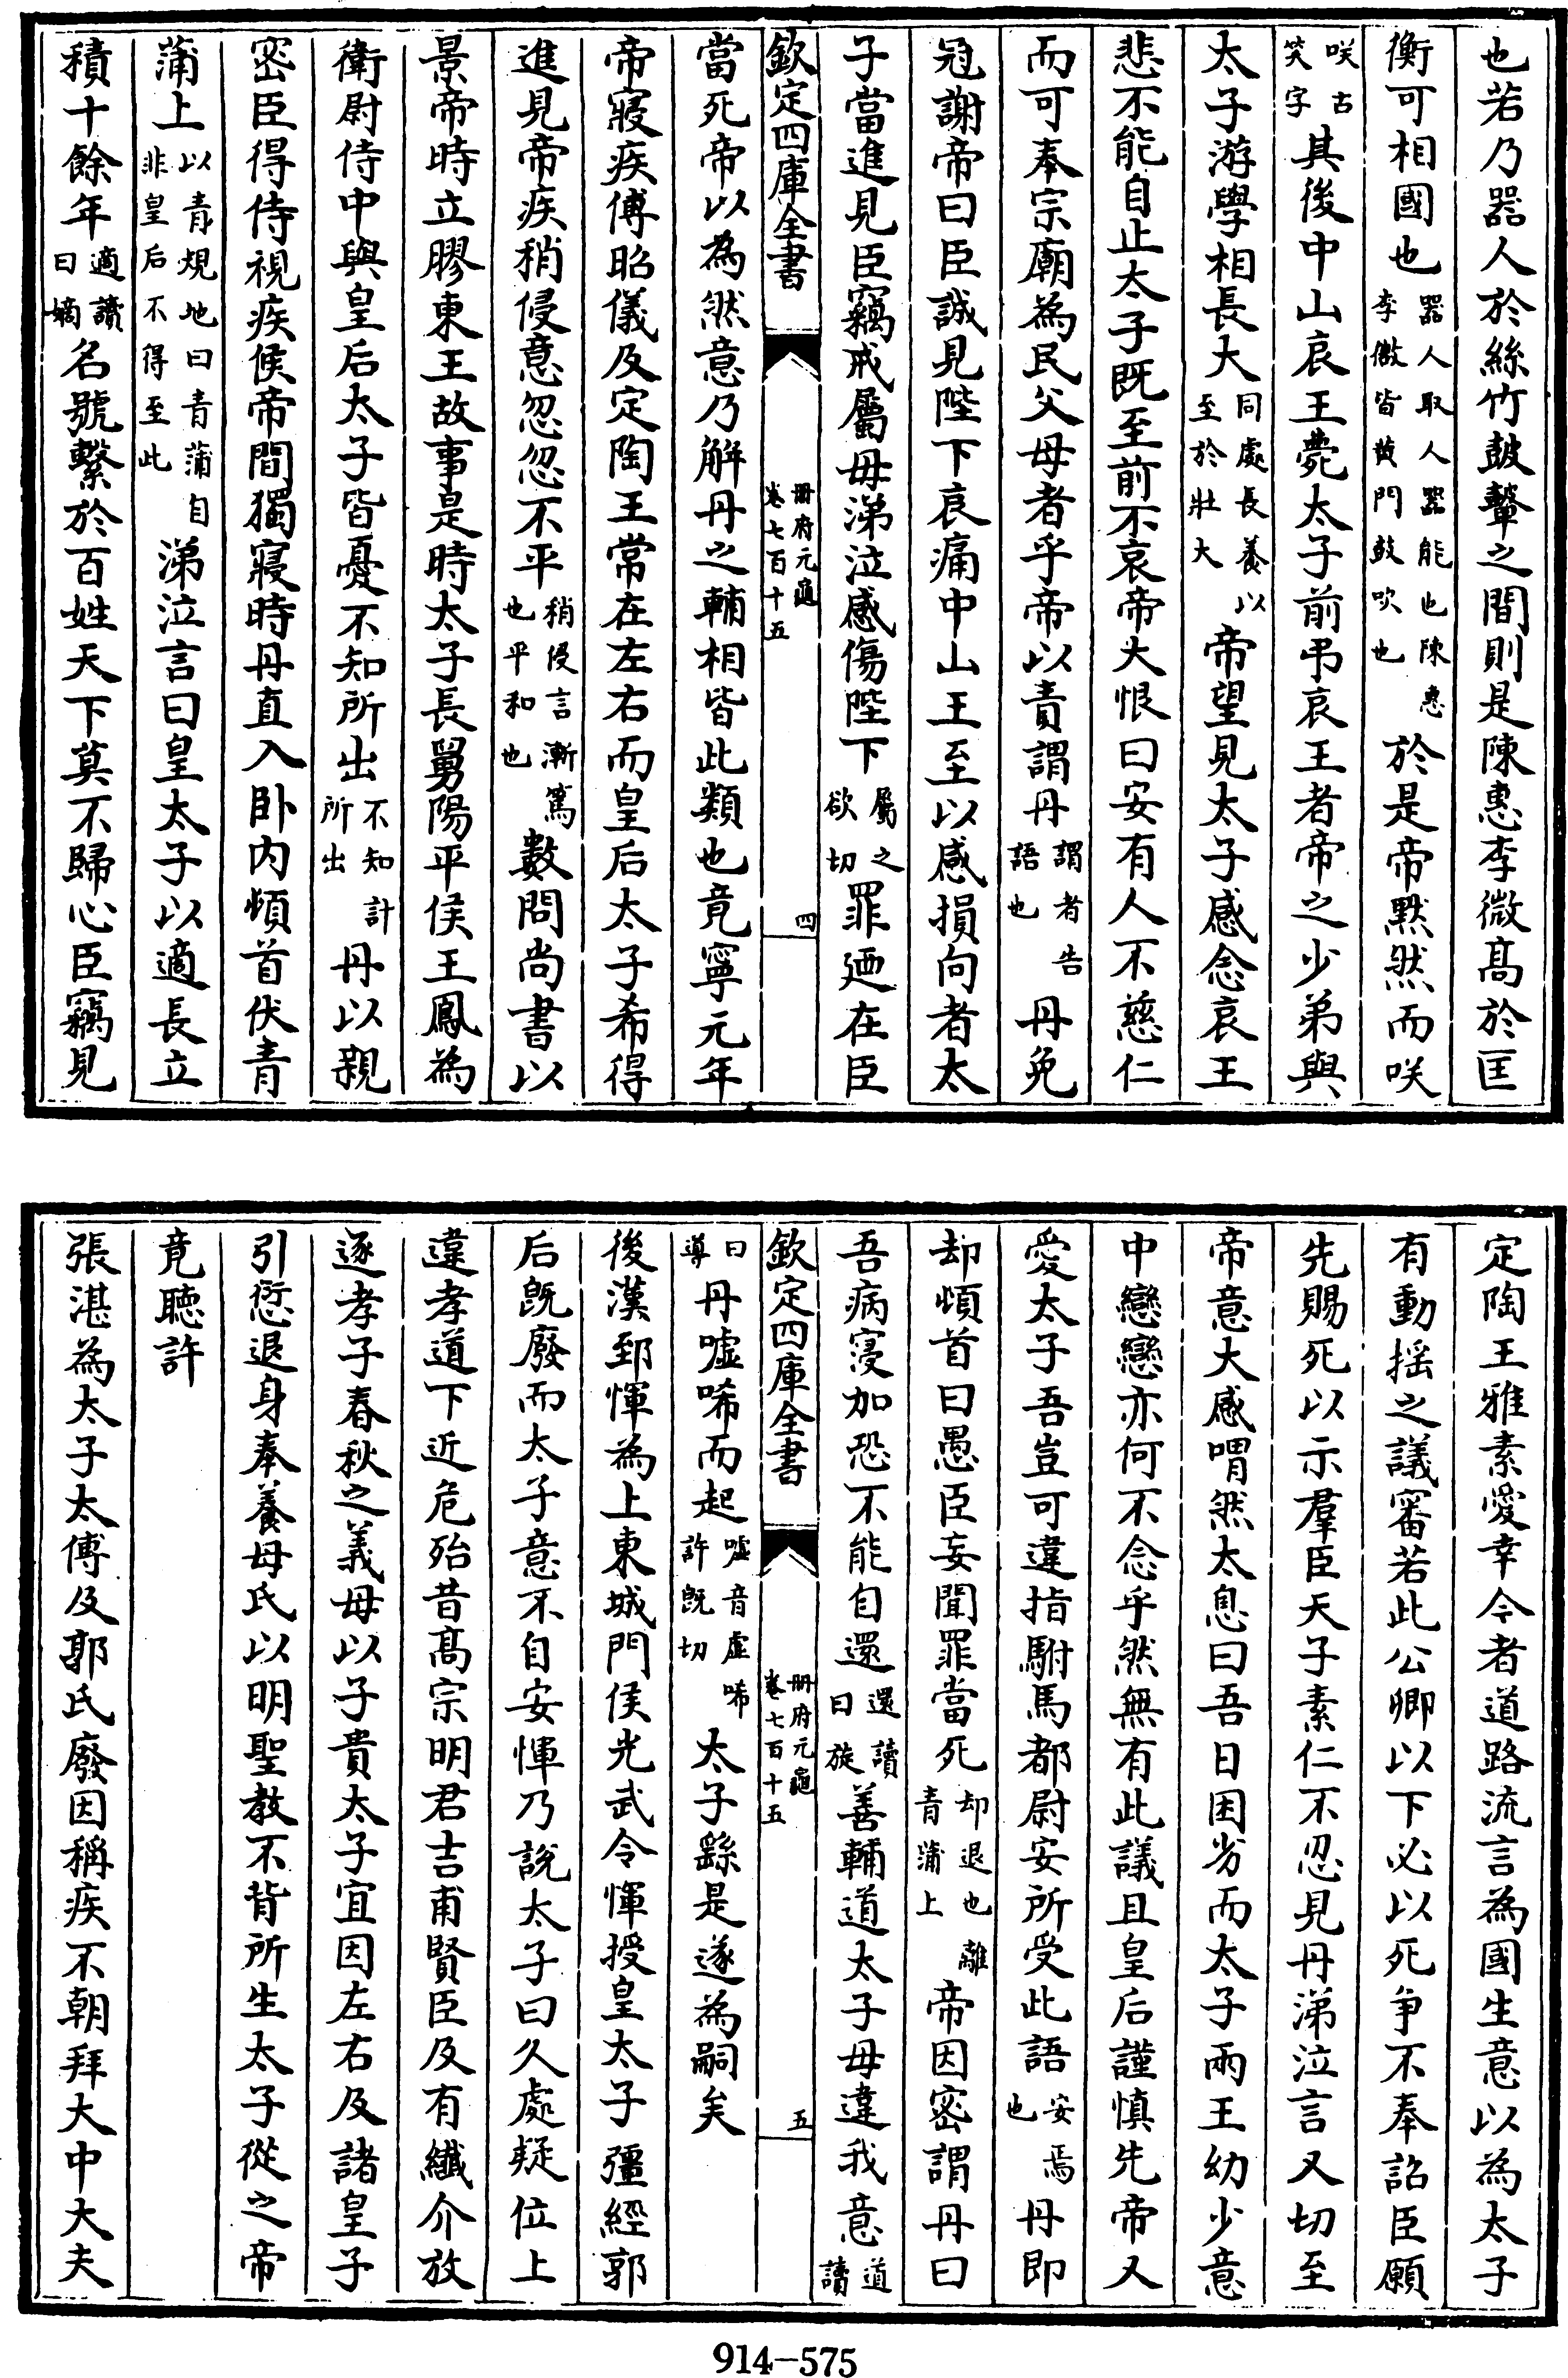 也若乃器人於絲竹鼓鼙之間則是陳惠李微髙於匡
衡可相國也器人取人器能也陳惠李微皆黄門鼓吹也於是帝黙然而咲
咲古笑字其後中山哀王薨太子前弔哀王者帝之少弟與
太子游學相長大同處長養以至於壯大帝望見太子感念哀王
悲不能自止太子既至前不哀帝大恨曰安有人不慈仁
而可奉宗廟為民父母者乎帝以責謂丹謂者告語也丹免
冠謝帝曰臣誠見陛下哀痛中山王至以感損向者太
子當進見臣竊戒屬毋涕泣感傷陛下屬之欲切罪迺在臣
欽定四庫全書
冊府元龜
卷七百十五
四
當死帝以為然意乃解丹之輔相皆此類也竟寧元年
帝寢疾傅昭儀及定陶王常在左右而皇后太子希得
進見帝疾稍侵意忽忽不平稍侵言漸篤也平和也數問尚書以
景帝時立膠東王故事是時太子長舅陽平侯王鳳為
衛尉侍中與皇后太子皆憂不知所出不知計所出丹以親
密臣得侍視疾候帝間獨寢時丹直入卧内頓首伏青
蒲上以青規地曰青蒲自非皇后不得至此涕泣言曰皇太子以適長立
積十餘年適讀曰嫡名號繫於百姓天下莫不歸心臣竊見
定陶王雅素愛幸今者道路流言為國生意以為太子
有動揺之議審若此公卿以下必以死争不奉詔臣願
先賜死以示羣臣天子素仁不忍見丹涕泣言又切至
帝意大感喟然太息曰吾日困劣而太子兩王幼少意
中戀戀亦何不念乎然無有此議且皇后謹慎先帝又
愛太子吾豈可違指駙馬都尉安所受此語安焉也丹即
却頓首曰愚臣妄聞罪當死却退也離青蒲上帝因密謂丹曰
吾病寖加恐不能自還還讀曰旋善輔道太子毋違我意道讀
欽定四庫全書
冊府元龜
卷七百十五
五
曰導丹嘘唏而起嘘音虚唏許既切太子繇是遂為嗣矣
後漢郅惲為上東城門侯光武令惲授皇太子彊經郭
后既廢而太子意不自安惲乃說太子曰久處疑位上
違孝道下近危殆昔髙宗明君吉甫賢臣及有纎介放
逐孝子春秋之義母以子貴太子宜因左右及諸皇子
引愆退身奉養母氏以明聖教不背所生太子從之帝
竟聽許
張湛為太子太傅及郭氏廢因稱疾不朝拜大中大夫
914-575